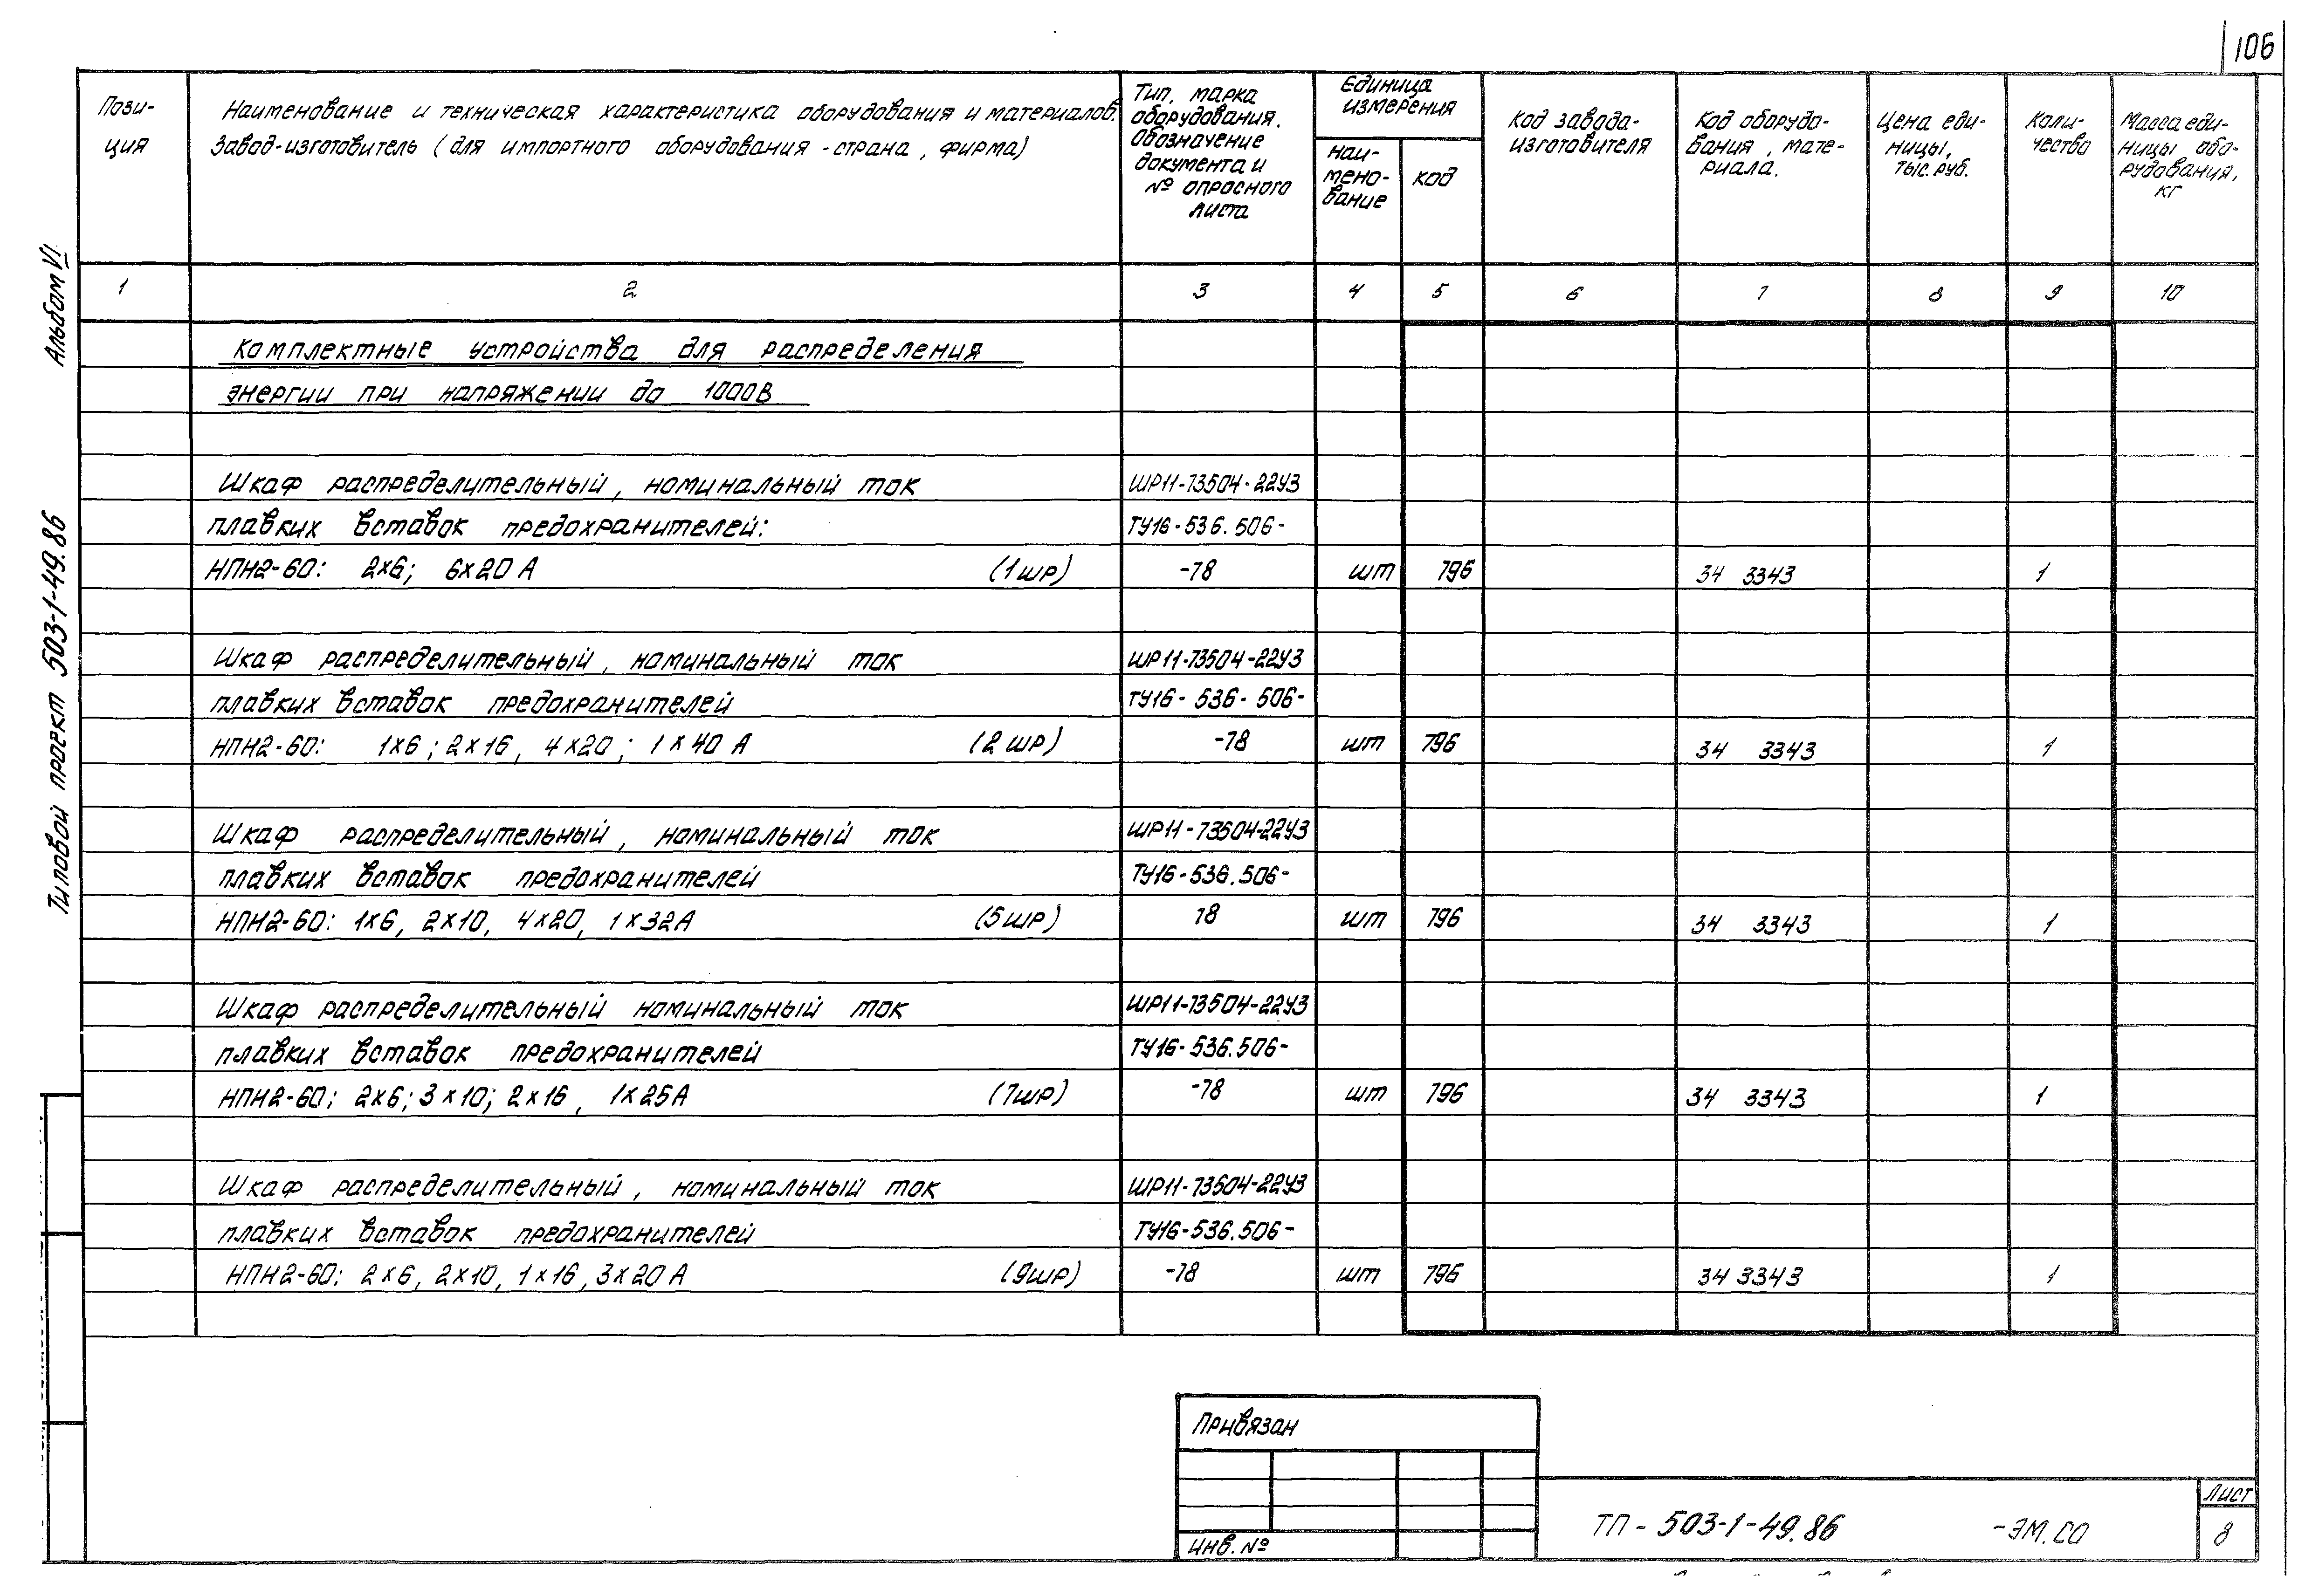 106
Пози-
ция
Наименование и техническая характеристика оборудования и материалов.
Завод-изготовитель (для импортного оборудования - страна, фирма)
Тип, марка
оборудования.
Обозначение
документа и
№ опросного
листа
Единица
измерения
наи-
мено-
вание
код
Код завода-
изготовителя
Код оборудо-
вания, мате-
риала.
Цена еди-
ницы,
тыс. руб.
Коли-
чество
Масса еди-
ницы обо-
рудования,
кг
1 2 3 4 5 6 7 8 9 10
Комплектные устройства для распределения
энергии при напряжении до 1000В
Шкаф распределительный, номинальный ток ШР11-73504-22У3
плавких вставок предохранителей: ТУ16-536.506-
НПН2-60: 2х6; 6х20 А (1шр) -78 шт 796 34 3343 1
Шкаф распределительный, номинальный ток ШР11-73504-22У3
плавких вставок предохранителей ТУ16-536-506-
НПН2-60: 1х6; 2х16, 4х20; 1х40 А (2 шр) -78 шт 796 34 3343 1
Шкаф распределительный, номинальный ток ШР11-73504-22У3
плавких вставок предохранителей ТУ16-536.506-
НПН2-60: 1х6, 2х10, 4х20, 1х32А (5шр) 78 шт 796 34 3343 1
Шкаф распределительный номинальный ток ШР11-73504-22У3
плавких вставок предохранителей ТУ16-536.506-
НПН2-60; 2х6; 3х10; 2х16, 1х25А (7шр) -78 шт 796 34 3343 1
Шкаф распределительный, номинальный ток ШР11-73504-22У3
плавких вставок предохранителей ТУ16-536.506-
НПН2-60: 2х6, 2х10, 1х16, 3х20 А (9шр) -78 шт 796 34 3343 1
Альбом VI
Типовой проект 503-1-49.86
Привязан
Инв. №
ТП-503-1-49.86 -ЭМ.СО
Лист
8